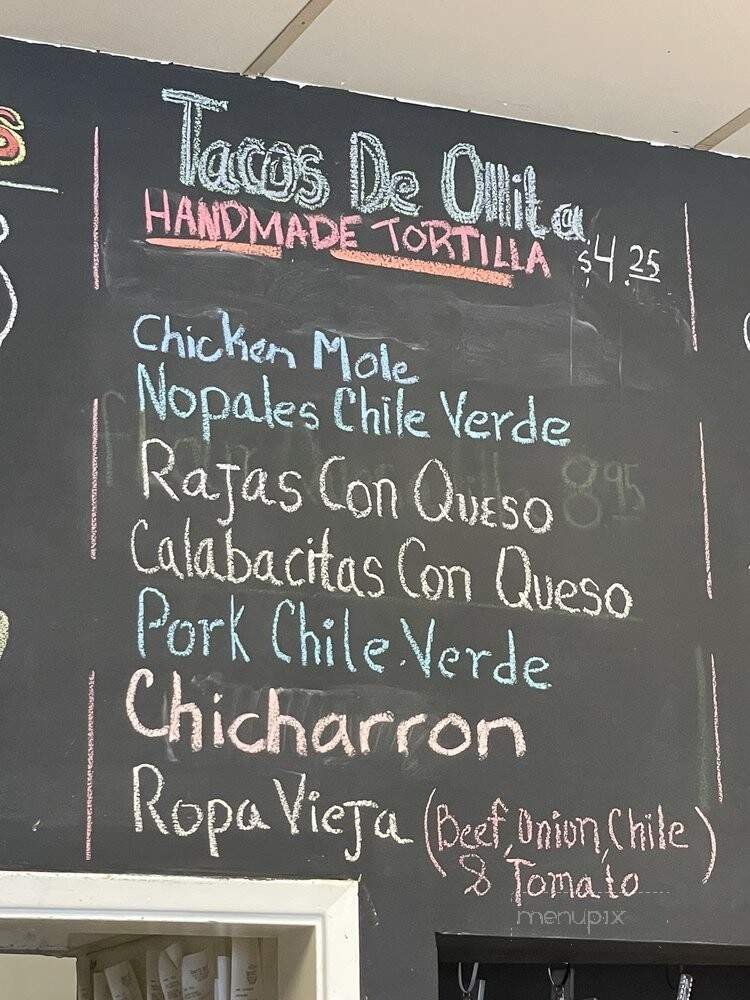 Tacos De Ollita
HANDMADE TORTILLA $4.25
Chicken Mole
Nopales Chile Verde
Rajas Con Queso
8.95
Calabacitas Con Queso
Pork Chile Verde
Chicharron
Ropa Vieja (Beef, Onion, Chile)
& Tomato
menupix